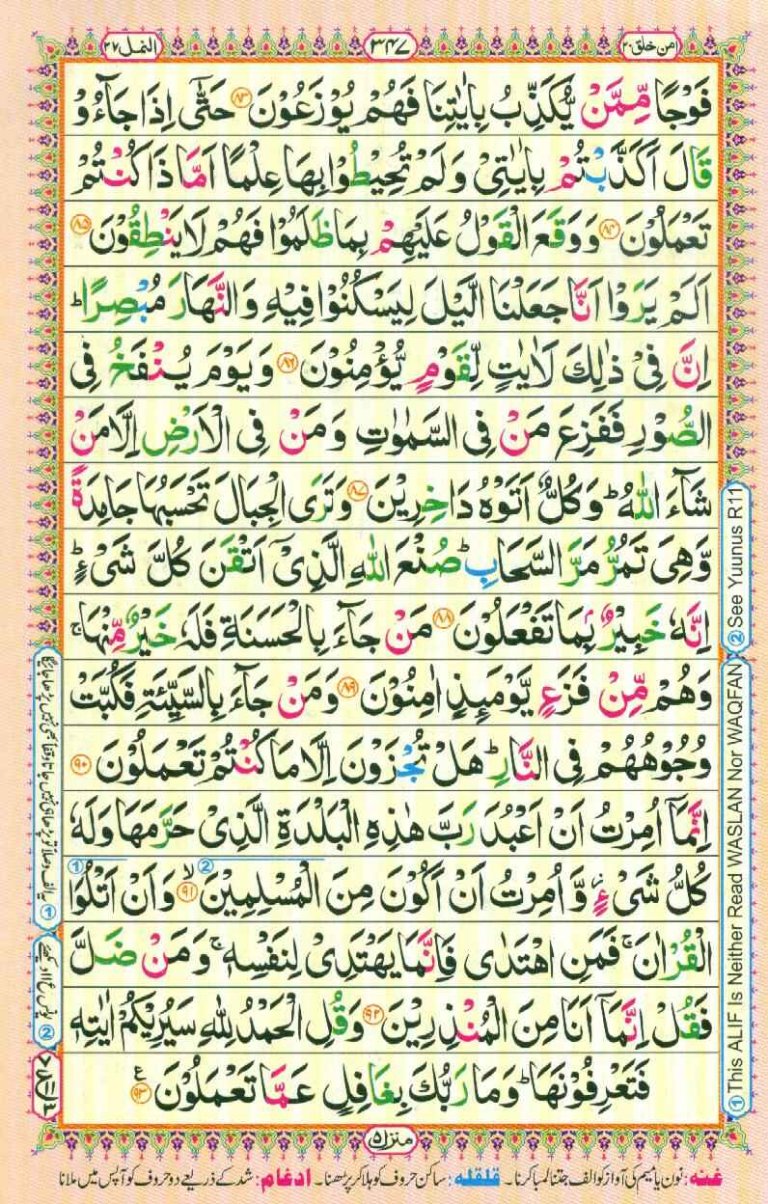 امن خلق ۲۰
۳۴۷
النمل ۲۷
فَوْجًا مِّمَّنْ يُّكَذِّبُ بِاٰيٰتِنَا فَهُمْ يُوْزَعُوْنَ ۝۸۳ حَتّٰۤى اِذَا جَآءُوْ
قَالَ اَكَذَّبْتُمْ بِاٰيٰتِىْ وَلَمْ تُحِيْطُوْا بِهَا عِلْمًا اَمَّا ذَا كُنْتُمْ
تَعْمَلُوْنَ ۝۸۴ وَوَقَعَ الْقَوْلُ عَلَيْهِمْ بِمَا ظَلَمُوْا فَهُمْ لَا يَنْطِقُوْنَ ۝۸۵
اَلَمْ يَرَوْا اَنَّا جَعَلْنَا الَّيْلَ لِيَسْكُنُوْا فِيْهِ وَالنَّهَارَ مُبْصِرًا ؕ
اِنَّ فِىْ ذٰلِكَ لَاٰيٰتٍ لِّقَوْمٍ يُّؤْمِنُوْنَ ۝۸۶ وَيَوْمَ يُنْفَخُ فِى
الصُّوْرِ فَفَزِعَ مَنْ فِى السَّمٰوٰتِ وَمَنْ فِى الْاَرْضِ اِلَّا مَنْ
شَآءَ اللّٰهُ ؕ وَكُلٌّ اَتَوْهُ دَاخِرِيْنَ ۝۸۷ وَتَرَى الْجِبَالَ تَحْسَبُهَا جَامِدَةً
وَّهِىَ تَمُرُّ مَرَّ السَّحَابِ ؕ صُنْعَ اللّٰهِ الَّذِىْۤ اَتْقَنَ كُلَّ شَىْءٍ ؕ
اِنَّهٗ خَبِيْرٌۢ بِمَا تَفْعَلُوْنَ ۝۸۸ مَنْ جَآءَ بِالْحَسَنَةِ فَلَهٗ خَيْرٌ مِّنْهَا ۚ
وَهُمْ مِّنْ فَزَعٍ يَّوْمَئِذٍ اٰمِنُوْنَ ۝۸۹ وَمَنْ جَآءَ بِالسَّيِّئَةِ فَكُبَّتْ
وُجُوْهُهُمْ فِى النَّارِ ؕ هَلْ تُجْزَوْنَ اِلَّا مَا كُنْتُمْ تَعْمَلُوْنَ ۝۹۰
اِنَّمَاۤ اُمِرْتُ اَنْ اَعْبُدَ رَبَّ هٰذِهِ الْبَلْدَةِ الَّذِىْ حَرَّمَهَا وَلَهٗ
كُلُّ شَىْءٍ ؗ وَّاُمِرْتُ اَنْ اَكُوْنَ مِنَ الْمُسْلِمِيْنَ ۙ۝۹۱ وَاَنْ اَتْلُوَا
② ①
الْقُرْاٰنَ ۚ فَمَنِ اهْتَدٰى فَاِنَّمَا يَهْتَدِىْ لِنَفْسِهٖ ۚ وَمَنْ ضَلَّ
فَقُلْ اِنَّمَاۤ اَنَا مِنَ الْمُنْذِرِيْنَ ۝۹۲ وَقُلِ الْحَمْدُ لِلّٰهِ سَيُرِيْكُمْ اٰيٰتِهٖ
فَتَعْرِفُوْنَهَا ؕ وَمَا رَبُّكَ بِغَافِلٍ عَمَّا تَعْمَلُوْنَ ۝۹۳ ع
منزل ۵
غنه: نون یا میم کی آواز کو الف جتنا لمبا کرنا۔ قلقله: ساکن حروف کو ہلا کر پڑھنا۔ ادغام: شد کے ذریعے دو حروف کو آپس میں ملانا
① This ALIF Is Neither Read WASLAN Nor WAQFAN
② See Yuunus R11